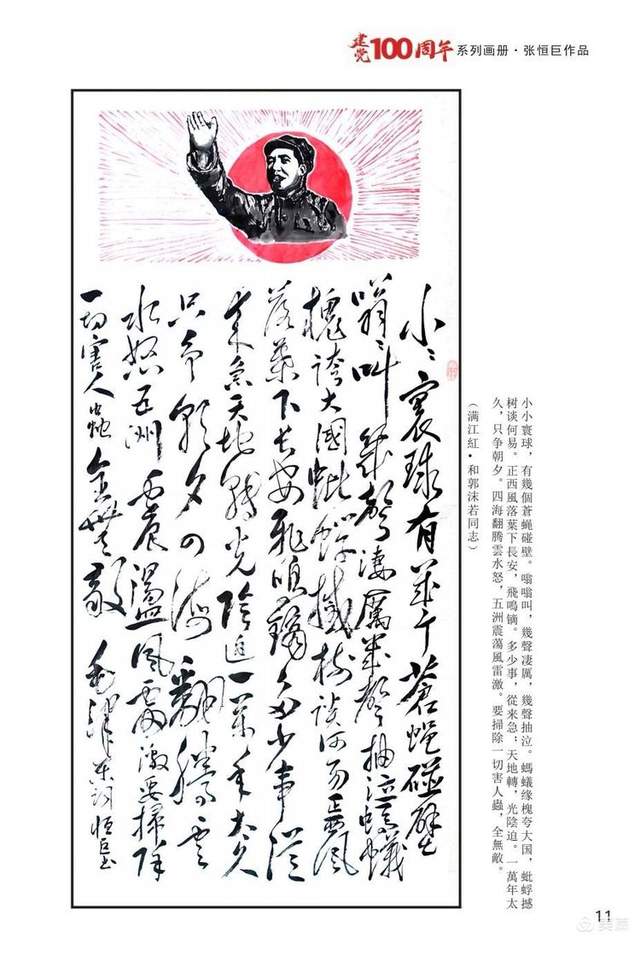 建党100周年系列画册·张恒巨作品
小〻寰球有幾个蒼蝇碰壁
嗡〻叫幾聲凄厲幾聲抽泣螞蟻
槐誇大國蚍蜉撼樹談何易正西風
落葉下長安飛鳴鏑多少事從
来急天地轉光陰迫一萬年太久
只争朝夕四海翻騰雲
水怒五洲震盪風雷激要掃除
一切害人蟲全無敵 毛澤東詞 恒巨書
小小寰球，有幾個蒼蝇碰壁。嗡嗡叫，幾聲凄厲，幾聲抽泣。螞蟻缘槐夸大国，蚍蜉撼
树谈何易。正西風落葉下長安，飛鳴镝。多少事，從来急；天地轉，光陰迫。一萬年太
久，只争朝夕。四海翻腾雲水怒，五洲震荡風雷激。要掃除一切害人蟲，全無敵。
（满江紅•和郭沫若同志）
11
美篇